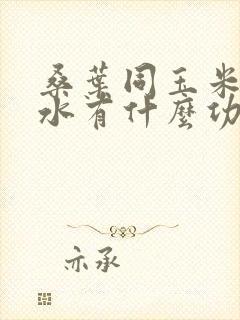 桑葉同玉米
水有什麼功
亦承